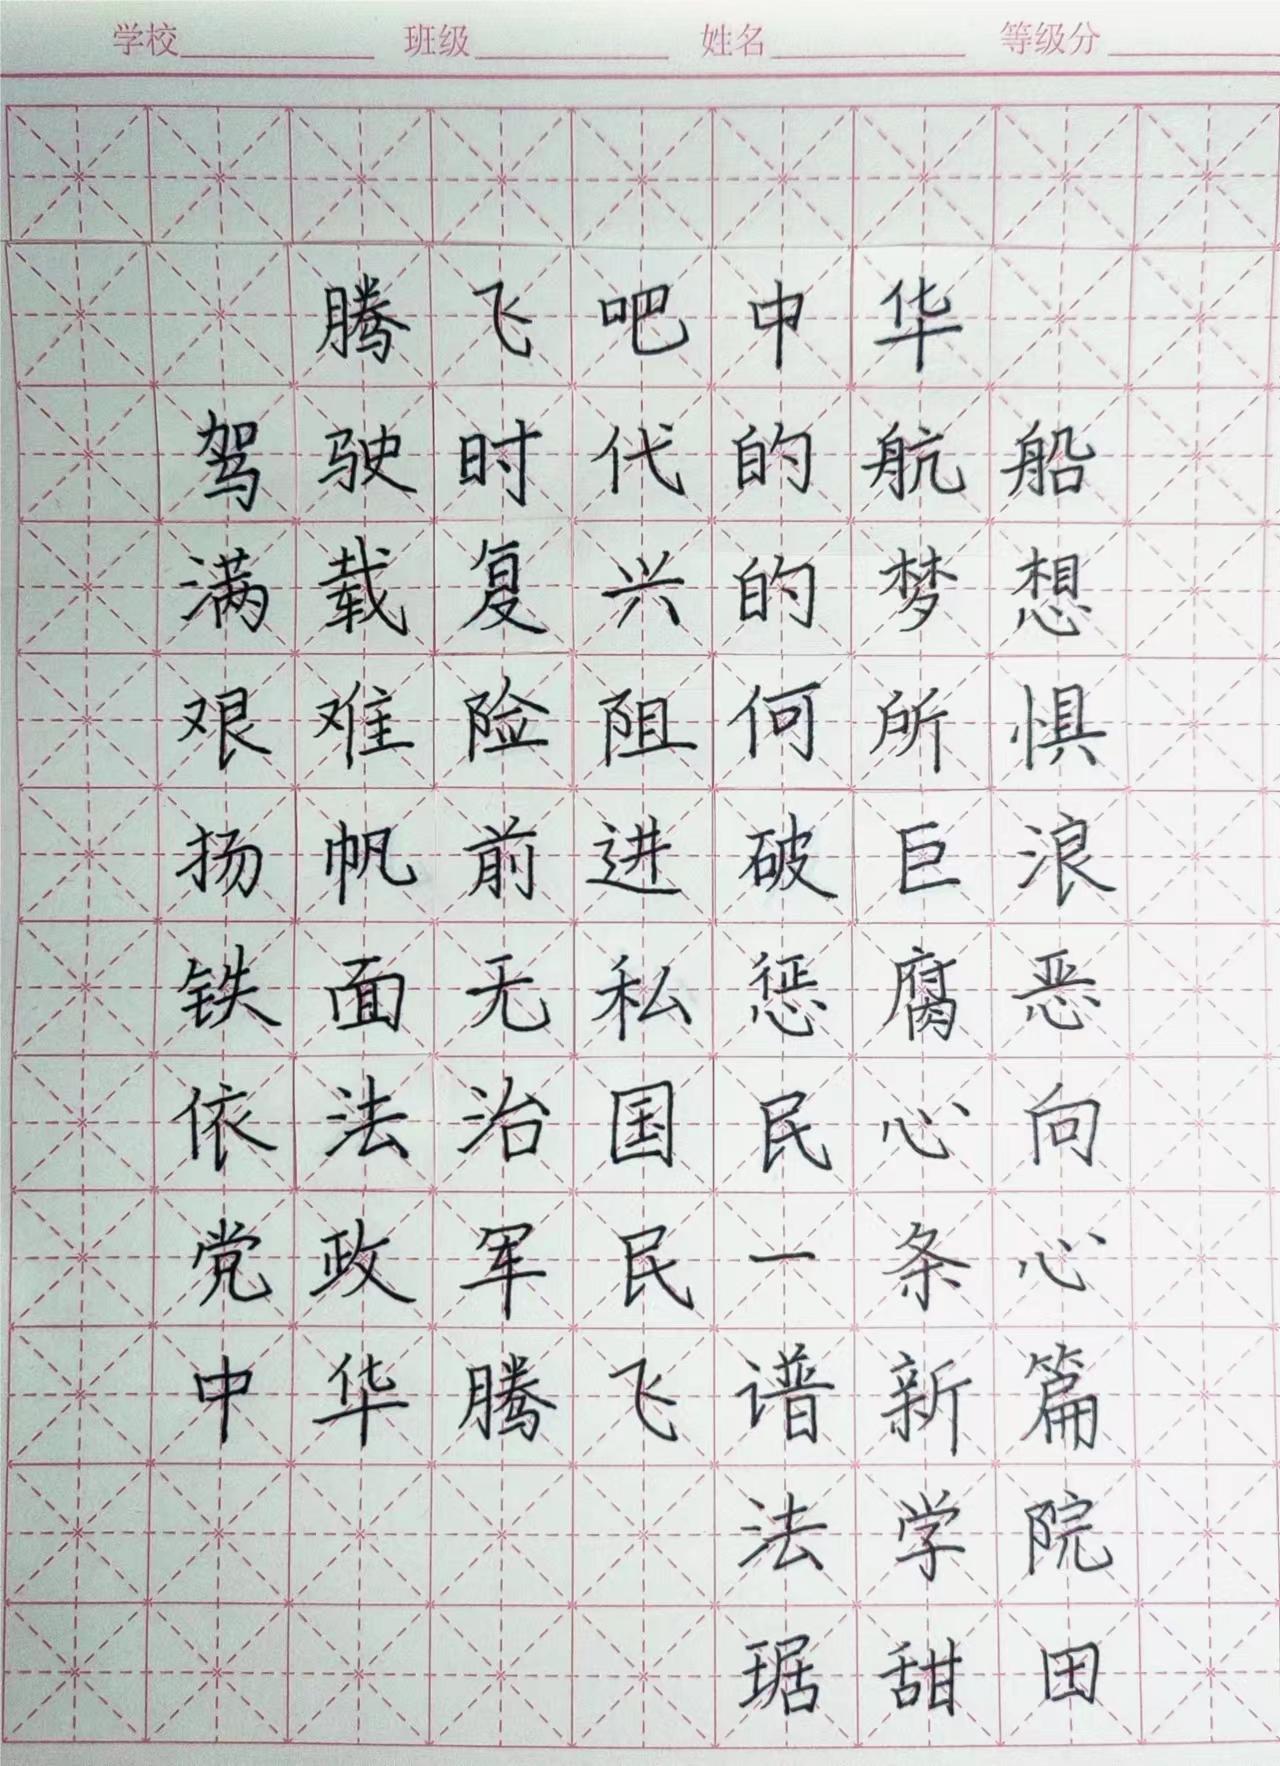 学校 班级 姓名 等级分
腾飞吧中华
驾驶时代的航船
满载复兴的梦想
艰难险阻何所惧
扬帆前进破巨浪
铁面无私惩腐恶
依法治国民心向
党政军民一条心
中华腾飞谱新篇
法学院
琚甜田